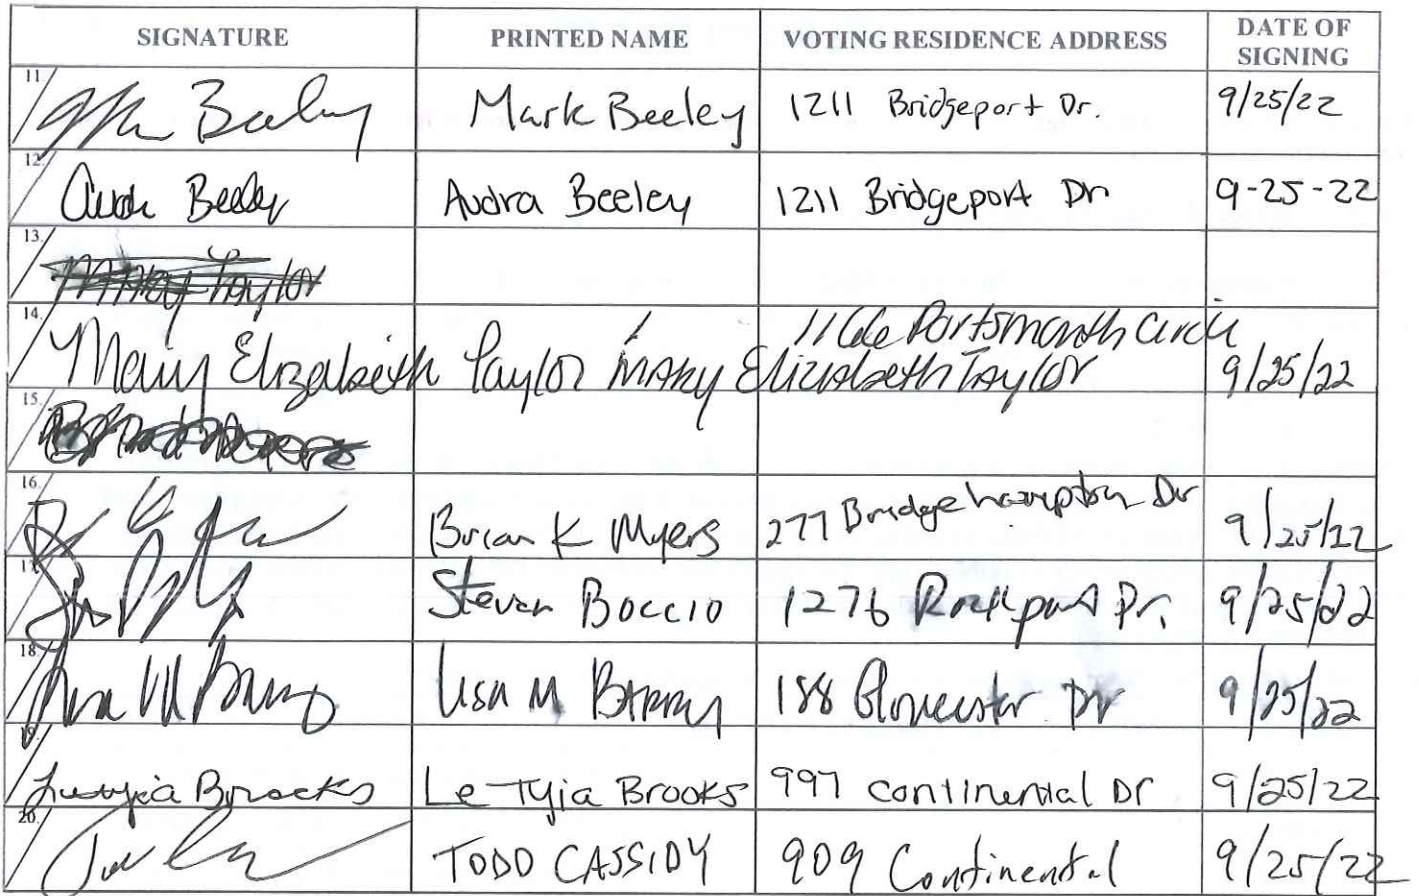 SIGNATURE PRINTED NAME VOTING RESIDENCE ADDRESS DATE OF SIGNING
11 Beeley Mark Beeley 1211 Bridgeport Dr. 9/25/22
12. Audra Beeley Audra Beeley 1211 Bridgeport Dr 9-25-22
13. Mary Taylor
14. Mary Elizabeth Taylor Mary Elizabeth Taylor 1166 Portsmouth Circle 9/25/22
15.
16. Brian K Myers 277 Bridgehampton Dr 9/25/22
17. Steven Boccio 1276 Rockport Dr. 9/25/22
18. Lisa M Barry Lisa M Barry 188 Gloucester Dr 9/25/22
19. Letyjia Brooks Le-Tyjia Brooks 997 Continental Dr 9/25/22
20. TODD CASSIDY 909 Continental 9/25/22